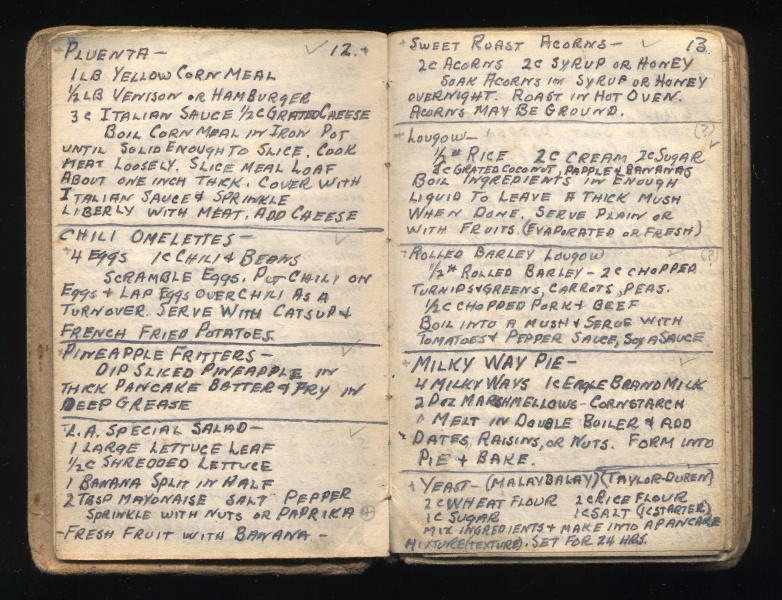 PLUENTA - ✓ 12.
1 LB YELLOW CORN MEAL
½ LB VENISON OR HAMBURGER
3 C ITALIAN SAUCE ½ C GRATED CHEESE
BOIL CORN MEAL IN IRON POT
UNTIL SOLID ENOUGH TO SLICE. COOK
MEAT LOOSELY. SLICE MEAL LOAF
ABOUT ONE INCH THICK. COVER WITH
ITALIAN SAUCE & SPRINKLE
LIBERLY WITH MEAT. ADD CHEESE
CHILI OMELETTES - ✓
4 EGGS 1C CHILI & BEANS
SCRAMBLE EGGS. PUT CHILI ON
EGGS & LAP EGGS OVER CHILI AS A
TURNOVER. SERVE WITH CATSUP &
FRENCH FRIED POTATOES.
PINEAPPLE FRITTERS - ✓
DIP SLICED PINEAPPLE IN
THICK PANCAKE BATTER & FRY IN
DEEP GREASE
L.A. SPECIAL SALAD - ✓
1 LARGE LETTUCE LEAF
½ C SHREDDED LETTUCE
1 BANANA SPLIT IN HALF
2 TBSP MAYONAISE SALT PEPPER
SPRINKLE WITH NUTS OR PAPRIKA
- FRESH FRUIT WITH BANANA -
SWEET ROAST ACORNS - ✓ 13.
2C ACORNS 2C SYRUP OR HONEY
SOAK ACORNS IN SYRUP OR HONEY
OVERNIGHT. ROAST IN HOT OVEN.
ACORNS MAY BE GROUND.
LOUGOW - (?) ✓
½ # RICE 2C CREAM 2C SUGAR
2C GRATED COCONUT, PAPPLE & BANANAS
BOIL INGREDIENTS IN ENOUGH
LIQUID TO LEAVE A THICK MUSH
WHEN DONE. SERVE PLAIN OR
WITH FRUITS. (EVAPORATED OR FRESH)
ROLLED BARLEY LOUGOW ✓ (?)
½ # ROLLED BARLEY - 2C CHOPPED
TURNIPS & GREENS, CARROTS, PEAS.
½ C CHOPPED PORK & BEEF
BOIL INTO A MUSH & SERVE WITH
TOMATOES & PEPPER SAUCE, SOYA SAUCE
MILKY WAY PIE - ✓
4 MILKY WAYS 1C EAGLE BRAND MILK
2 DOZ MARSHMELLOWS - CORNSTARCH
MELT IN DOUBLE BOILER & ADD
DATES, RAISINS, OR NUTS. FORM INTO
PIE & BAKE.
YEAST - (MALAYBALAY) (TAYLOR-DUREN)
2C WHEAT FLOUR 2C RICE FLOUR
1C SUGAR 1C SALT (1C STARTER)
MIX INGREDIENTS & MAKE INTO A PANCAKE
MIXTURE (TEXTURE). SET FOR 24 HRS.